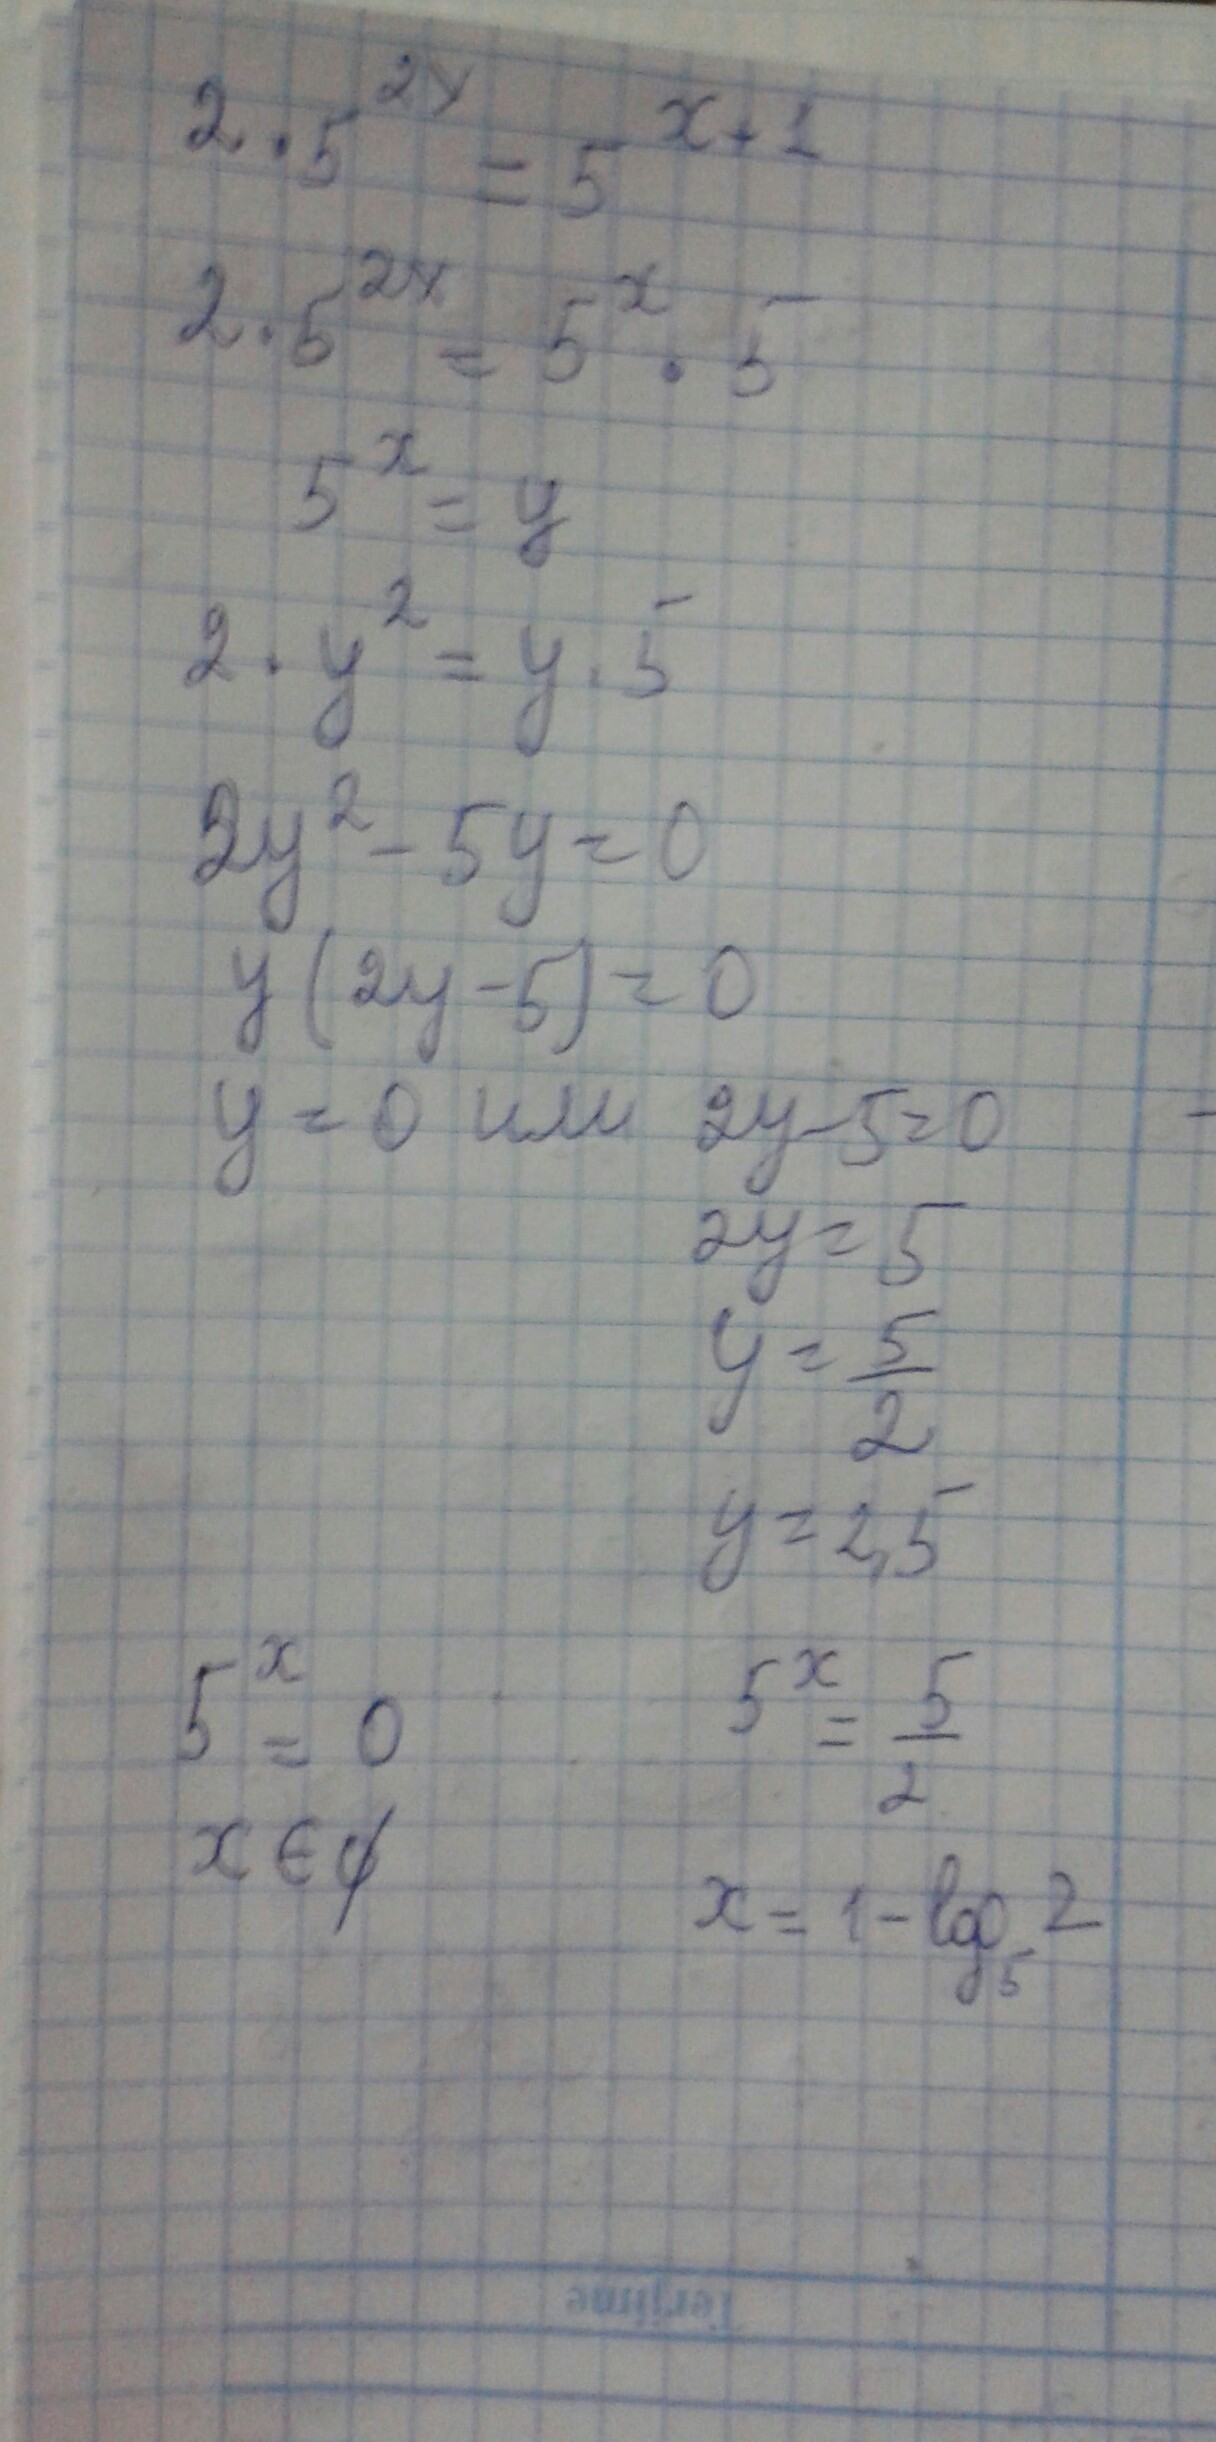 2·5^{2x} = 5^{x+1}
2·5^{2x} = 5^{x} · 5
5^{x} = y
2·y^{2} = y·5
2y^{2} - 5y = 0
y(2y-5) = 0
y = 0 или 2y-5=0
2y = 5
y = \frac{5}{2}
y = 2,5
5^{x} = 0 5^{x} = \frac{5}{2}
x ∈ ∅ x = 1 - log_{5} 2
Terjime